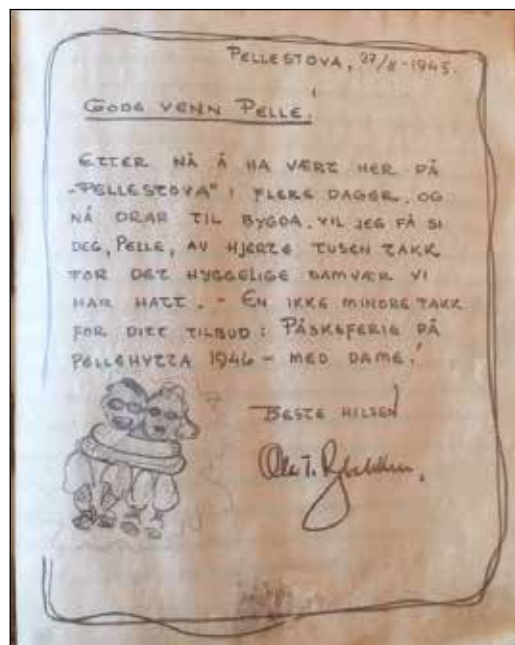 PELLESTOVA, 27/8-1945.
GODE VENN PELLE!
ETTER NÅ Å HA VÆRT HER PÅ
"PELLESTOVA" I FLERE DAGER, OG
NÅ DRAR TIL BYGDA, VIL JEG FÅ SI
DEG, PELLE, AV HJERTE TUSEN TAKK
FOR DET HYGGELIGE SAMVÆR VI
HAR HATT. - EN IKKE MINDRE TAKK
FOR DITT TILBUD: PÅSKEFERIE PÅ
PELLEHYTTA 1946 - MED DAME!
BESTE HILSEN!
Ola T.